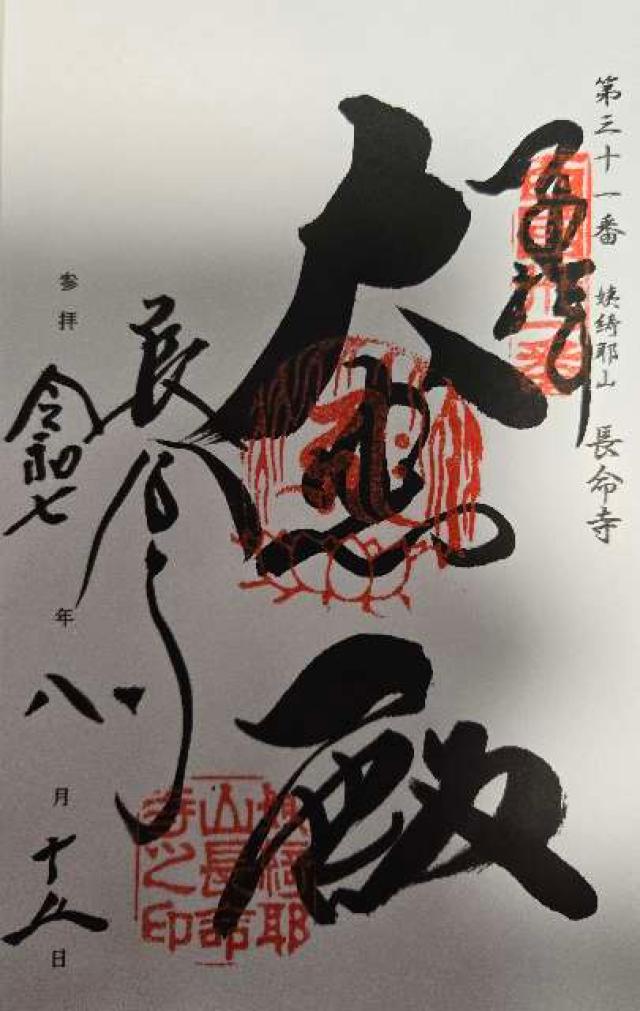 第三十一番 姨綺耶山 長命寺
奉拝
大悲殿
長命寺
参拝 令和七年八月十九日
姨綺耶山長命寺之印